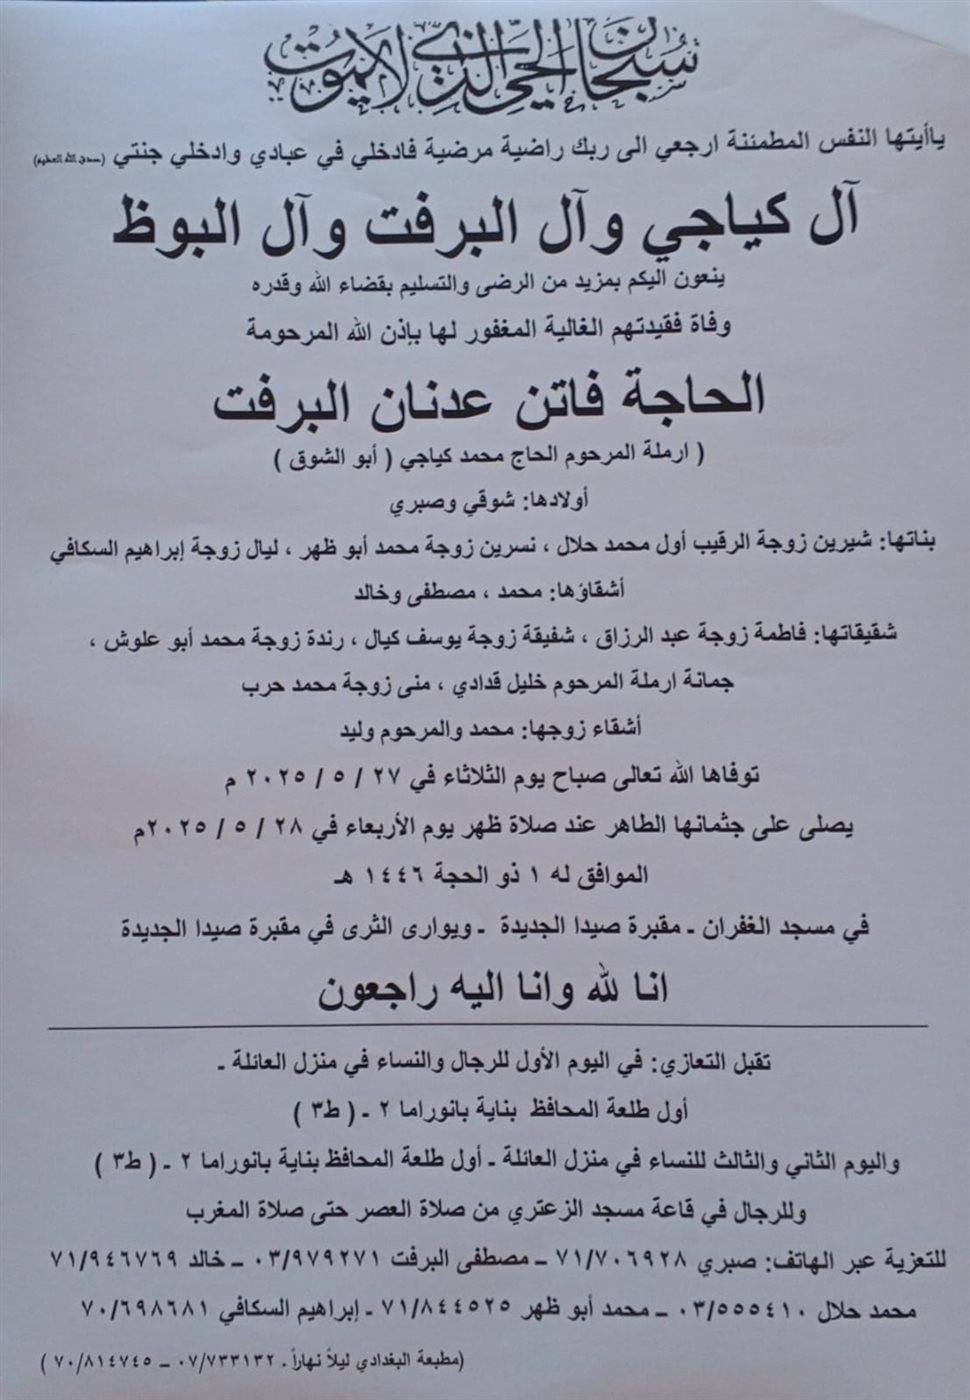 سبحان الحي الذي لا يموت
ياأيتها النفس المطمئنة ارجعي الى ربك راضية مرضية فادخلي في عبادي وادخلي جنتي (صدق الله العظيم)
آل كياجي وآل البرفت وآل البوظ
ينعون اليكم بمزيد من الرضى والتسليم بقضاء الله وقدره
وفاة فقيدتهم الغالية المغفور لها بإذن الله المرحومة
الحاجة فاتن عدنان البرفت
( ارملة المرحوم الحاج محمد كياجي ( أبو الشوق )
أولادها: شوقي وصبري
بناتها: شيرين زوجة الرقيب أول محمد حلال ، نسرين زوجة محمد أبو ظهر ، ليال زوجة إبراهيم السكافي
أشقاؤها: محمد ، مصطفى وخالد
شقيقاتها: فاطمة زوجة عبد الرزاق ، شفيقة زوجة يوسف كيال ، رندة زوجة محمد أبو علوش ،
جمانة ارملة المرحوم خليل قدادي ، منى زوجة محمد حرب
أشقاء زوجها: محمد والمرحوم وليد
توفاها الله تعالى صباح يوم الثلاثاء في ٢٧ / ٥ / ٢٠٢٥ م
يصلى على جثمانها الطاهر عند صلاة ظهر يوم الأربعاء في ٢٨ / ٥ / ٢٠٢٥م
الموافق له ١ ذو الحجة ١٤٤٦ هـ
في مسجد الغفران ـ مقبرة صيدا الجديدة ـ ويوارى الثرى في مقبرة صيدا الجديدة
انا لله وانا اليه راجعون
تقبل التعازي: في اليوم الأول للرجال والنساء في منزل العائلة ـ
أول طلعة المحافظ بناية بانوراما ٢ ـ ( ط٣ )
واليوم الثاني والثالث للنساء في منزل العائلة ـ أول طلعة المحافظ بناية بانوراما ٢ ـ ( ط٣ )
وللرجال في قاعة مسجد الزعتري من صلاة العصر حتى صلاة المغرب
للتعزية عبر الهاتف: صبري ٧١/٧٠٦٩٢٨ ــ مصطفى البرفت ٠٣/٩٧٩٢٧١ ــ خالد ٧١/٩٤٦٧٦٩
محمد حلال ٠٣/٥٥٥٤١٠ ــ محمد أبو ظهر ٧١/٨٤٤٥٢٥ ـ إبراهيم السكافي ٧٠/٦٩٨٦٨١
(مطبعة البغدادي ليلاً نهاراً . ٠٧/٧٣٣١٣٢ ــ ٧٠/٨١٤٧٤٥ )